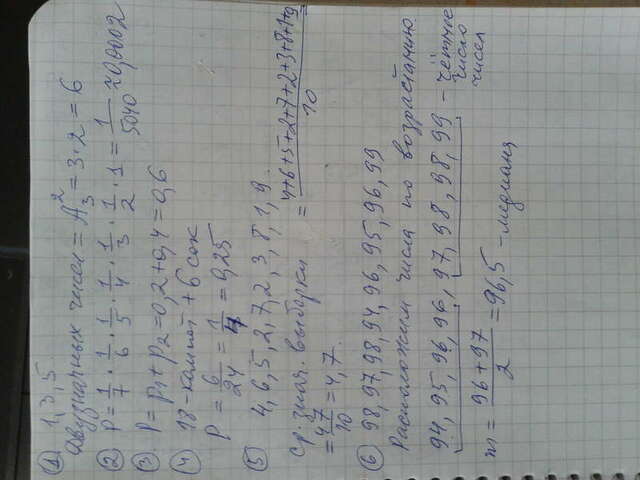 ① 1, 3, 5
Двузначных чисел = A₃² = 3·2 = 6
② P = 1/7 · 1/6 · 1/5 · 1/4 · 1/3 · 1/2 · 1 = 1/5040 ≈ 0,0002
③ P = P₁ + P₂ = 0,2 + 0,4 = 0,6
④ 18 - компот + 6 сок
P = 6/24 = 1/4 = 0,25
⑤ 4, 6, 5, 2, 7, 2, 3, 8, 1, 9
Ср. знач выборки = (4+6+5+2+7+2+3+8+1+9)/10 =
= 47/10 = 4,7
⑥ 98, 97, 98, 94, 96, 95, 96, 99
Расположим числа по возрастанию
94, 95, 96, 96, 97, 98, 98, 99 - чётное
число
чисел
m = (96 + 97)/2 = 96,5 - медиана